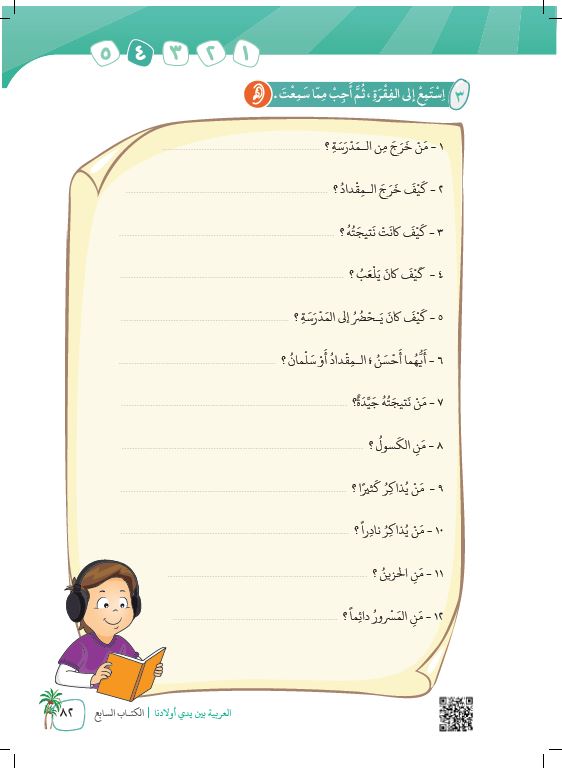 ١ ٢ ٣ ٤ ٥
٣ اِسْتَمِعْ إلى الفِقْرَةِ ، ثُمَّ أَجِبْ مِمّا سَمِعْتَ .
١ - مَنْ خَرَجَ مِن الـمَدْرَسَةِ ؟
٢ - كَيْفَ خَرَجَ الـمِقْدادُ ؟
٣ - كَيْفَ كانَتْ نَتيجَتُهُ ؟
٤ - كَيْفَ كانَ يَلْعَبُ ؟
٥ - كَيْفَ كانَ يَـحْضُرُ إلى المَدْرَسَةِ ؟
٦ - أَيُّهُما أَحْسَنُ ؛ الـمِقْدادُ أَوْ سَلْمانُ ؟
٧ - مَنْ نَتيجَتُهُ جَيِّدَةٌ؟
٨ - مَنِ الكَسولُ ؟
٩ - مَنْ يُذاكِرُ كَثيرًا ؟
١٠ - مَنْ يُذاكِرُ نادِراً ؟
١١ - مَنِ الحَزينُ ؟
١٢ - مَنِ المَسْرورُ دائِماً ؟
العربية بين يدي أولادنا | الكتاب السابع ٨٢